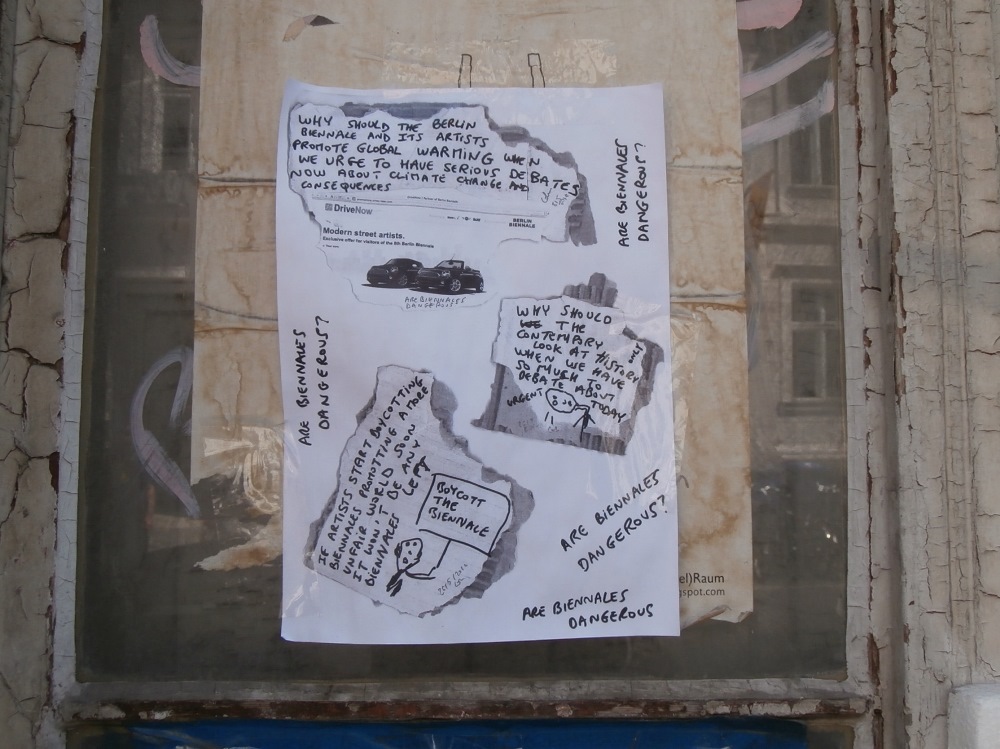 WHY SHOULD THE BERLIN
BIENNALE AND ITS ARTISTS
PROMOTE GLOBAL WARMING WHEN
WE URGE TO HAVE SERIOUS DEBATES
NOW ABOUT CLIMATE CHANGE AND
CONSEQUENCES
DriveNow
BERLIN
BIENNALE
Modern street artists.
Exclusive offer for visitors of the 8th Berlin Biennale
ARE BIENNALES
DANGEROUS
ARE BIENNALES
DANGEROUS?
WHY SHOULD
THE
CONTEMPARY ONLY
LOOK AT HISTORY
WHEN WE HAVE
SO MUCH TO
DEBATE ABOUT
URGENT TODAY
ARE BIENNALES
DANGEROUS?
IF ARTISTS START BOYCOTTING
BIENNALES PROMOTTING A MORE
UNFAIR WORLD SOON
IT WON'T BE ANY
BIENNALES LEFT
BOYCOTT
THE
BIENNALE
ARE BIENNALES
DANGEROUS?
ARE BIENNALES
DANGEROUS
el)Raum
gspot.com